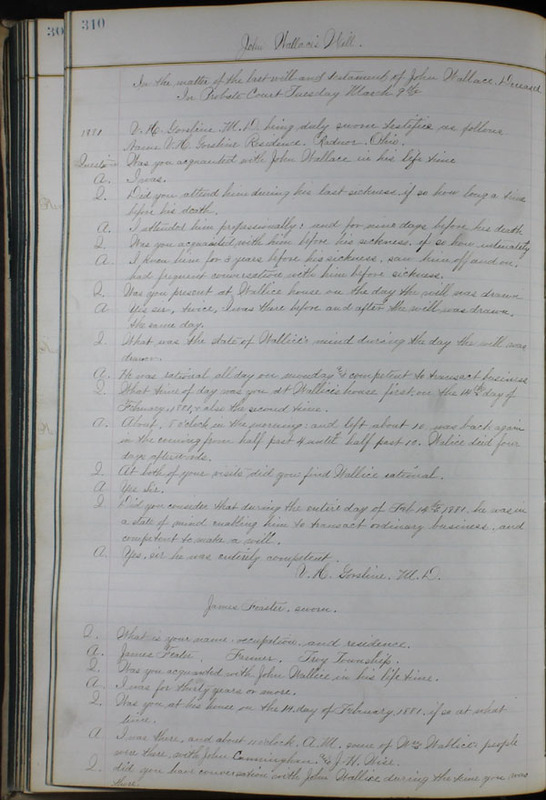 310
John Wallace's Will.
In the matter of the last will and testament of John Wallace, Deceased
In Probate Court Tuesday March 9th
1881 V. H. Gorsline M.D. being duly sworn testifies as follows
Name V. H. Gorsline Residence. Radnor, Ohio.
Question Was you acquanted with John Wallace in his life time
A. I was.
Q. Did you attend him during his last sickness, if so how long a time
before his death.
A. I attended him professionally; and for nine days before his death
Q. Was you acquanted with him before his sickness, if so how intimately
A. I knew him for 3 years before his sickness, saw him off and on,
had frequent conversation with him before sickness.
Q. Was you present at Wallice house on the day the will was drawn
A Yes sir, twice, I was there before and after the will was drawn,
the same day.
Q What was the state of Wallice's mind during the day the will was
drawn.
A. He was rational all day on monday & competent to transact business
Q. What time of day was you at Wallice's house first, on the 14th day of
February 1881, & also the second time.
A. About, 8 oclock in the morning; and left about 10 was back again
in the evening from half past 4 until half past 10. Walice died four
days afterwards.
Q. At both of your visits did you find Wallice rational.
A Yes Sir.
Q. Did you consider that during the entire day of Feb. 14th 1881. he was in
a state of mind enabling him to transact ordinary business, and
competent to make a will.
A. Yes, sir he was entirely competent.
V. H. Gorsline. M.D.
James Feaster. sworn.
Q. What is your name, occupation, and residence.
A. James Farmer. Troy Township.
Q. Was you acquanted with John Wallace, in his life time.
A. I was for thirty years or more.
Q. Was you at his house on the 14 day of February, 1881, if so at what
time.
A I was there, and about 11 oclock, A.M. some of Wm Wallice people
were there, with John Cunningham, & J. H.
Q. did you have conversation with John Wallace during the time you was
there.